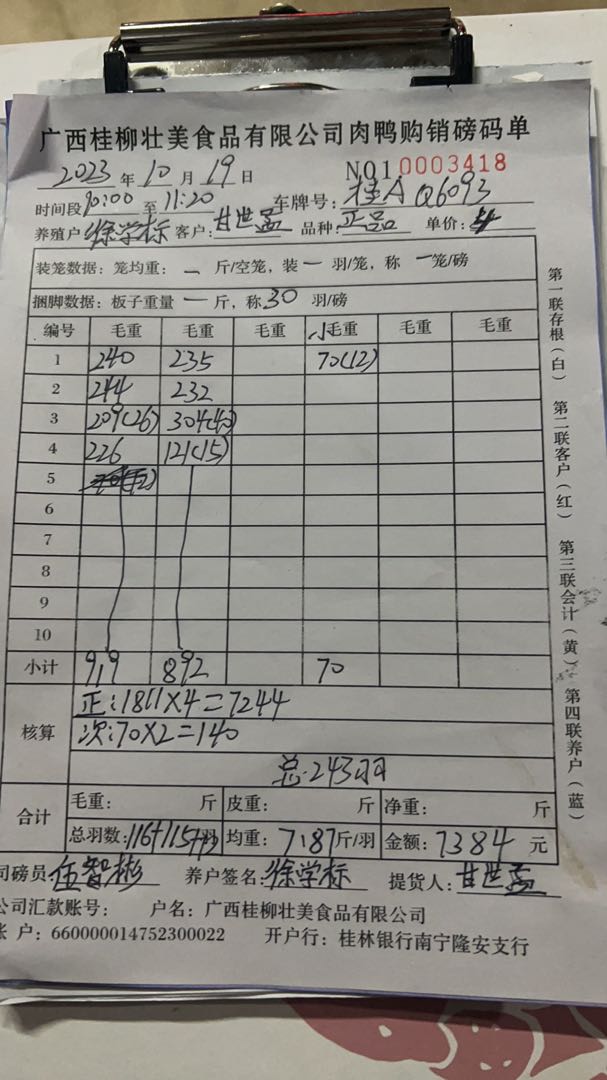 广西桂柳壮美食品有限公司肉鸭购销磅码单
2023 年 10 月 19 日 NO1 0003418
时间段 10:00 至 11:20 车牌号: 桂A Q6093
养殖户 徐学标 客户: 甘世孟 品种: 正品 单价: 4
装笼数据: 笼均重: 一 斤/空笼, 装 一 羽/笼, 称 一 笼/磅
捆脚数据: 板子重量 一 斤, 称 30 羽/磅
编号 毛重 毛重 毛重 小毛重 毛重 毛重
1 240 235 70(12)
2 244 232
3 209(26) 304(40)
4 226 121(15)
5
6
7
8
9
10
小计 919 892 70
核算
正:1811×4=7244
次:70×2=140
总:243羽
合计
毛重: 斤 皮重: 斤 净重: 斤
总羽数: 116+115+12羽 均重: 7.87 斤/羽 金额: 7384 元
司磅员 伍智彬 养户签名: 徐学标 提货人: 甘世孟
公司汇款账号: 户名: 广西桂柳壮美食品有限公司
账 户: 660000014752300022 开户行: 桂林银行南宁隆安支行
第一联存根(白) 第二联客户(红) 第三联会计(黄) 第四联养户(蓝)